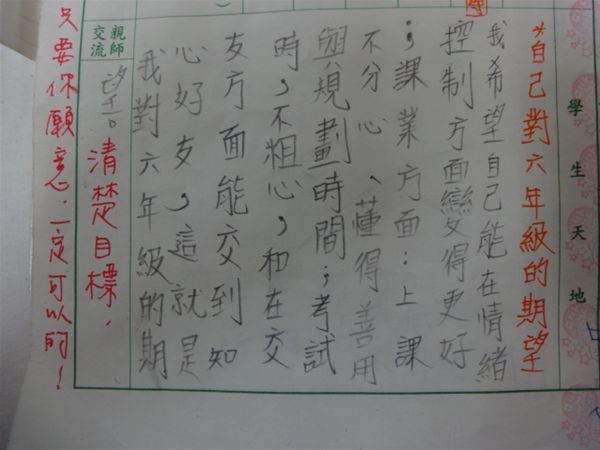 學生天地
*自己對六年級的期望
我希望自己能在情緒
控制方面變得更好
；課業方面：上課
不分心、懂得善用
與規劃時間；考試
時，不粗心，和在交
友方面能交到知
心好友，這就是
我對六年級的期
親師交流
望。清楚目標，
只要你願意，一定可以的！